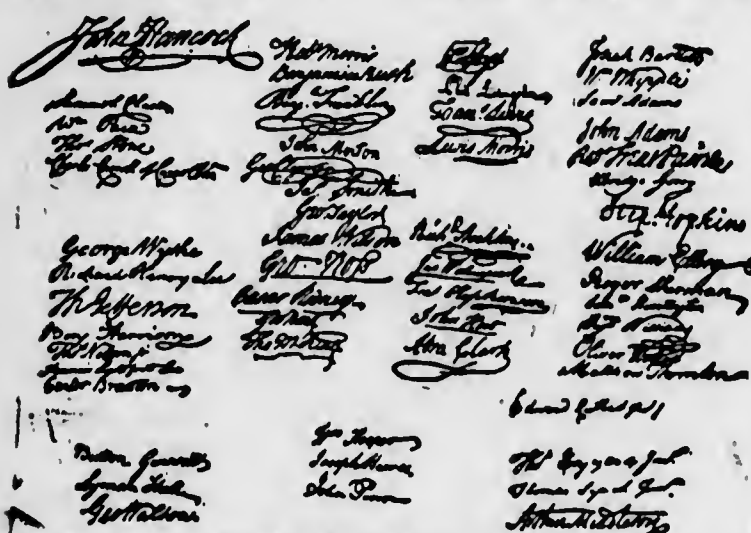 John Hancock
Samuel Chase
Wm Paca
Thos Stone
Charles Carroll of Carrollton
George Wythe
Richard Henry Lee
Th Jefferson
Benj Harrison
Thos Nelson jr
Francis Lightfoot Lee
Carter Braxton
Button Gwinnett
Lyman Hall
Geo Walton
Robt Morris
Benjamin Rush
Benj. Franklin
John Morton
Geo Clymer
Jas. Smith
Geo Taylor
James Wilson
Geo. Ross
Caesar Rodney
Geo Read
Tho M:Kean
Wm Hooper
Joseph Hewes
John Penn
Phil. Livingston
Frans. Lewis
Lewis Morris
Richd. Stockton
Jno Witherspoon
Fras. Hopkinson
John Hart
Abra Clark
Josiah Bartlett
Wm Whipple
Saml Adams
John Adams
Robt Treat Paine
Elbridge Gerry
Step. Hopkins
William Ellery
Roger Sherman
Sam Huntington
Wm Williams
Oliver Wolcott
Matthew Thornton
Edward Rutledge
Thos Heyward Junr.
Thomas Lynch Junr.
Arthur Middleton